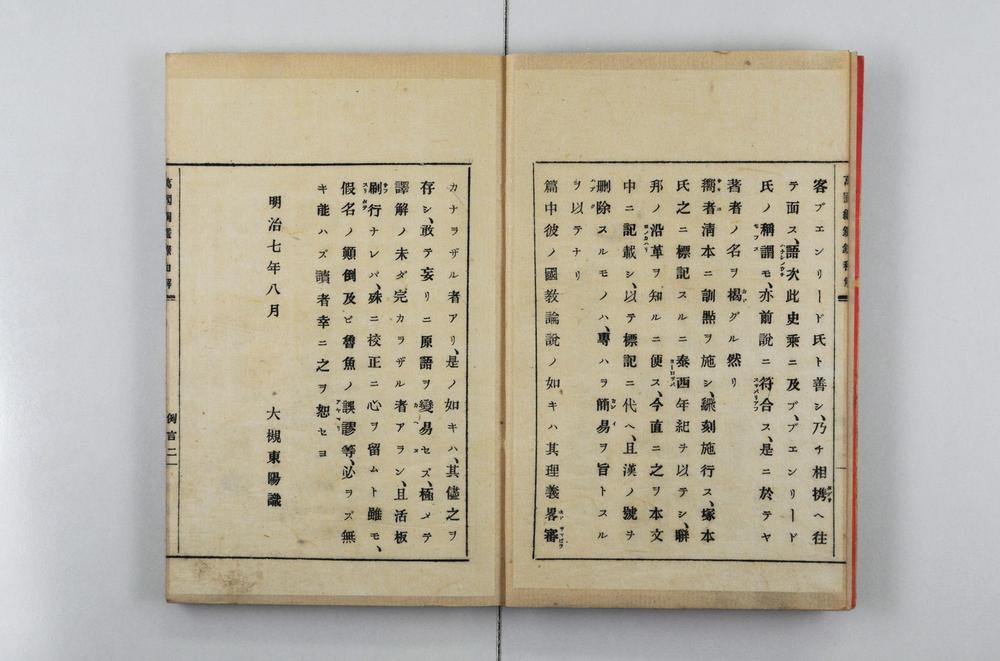 客ブエンリード氏ト善シ、乃チ相携ヘ往
テ面ス、語次此史乗ニ及ブ、ブエンリード
氏ノ稱謂モ、亦前説ニ符合ス、是ニ於テヤ
著者ノ名ヲ揭グル然リ
嚮者清本ニ訓點ヲ施シ、飜刻施行ス、塚本
氏之ニ標記スルニ泰西年紀ヲ以テシ、聯
邦ノ沿革ヲ知ルニ便ス、今直ニ之ヲ本文
中ニ記載シ、以テ標記ニ代ヘ、且漢ノ號ヲ
刪除スルモノハ、專ハラ簡易ヲ旨トスル
ヲ以テナリ
篇中彼ノ國教論説ノ如キハ其理義畧審
カナラザル者アリ、是ノ如キハ、其儘之ヲ
存シ、敢テ妄リニ原語ヲ變易セズ、極メテ
譯解ノ未ダ完カラザル者アラン、且活板
刷行ナレバ、殊ニ校正ニ心ヲ留ムト雖モ、
假名ノ顚倒及ビ魯魚ノ誤謬等、必ヲズ無
キ能ハズ讀者幸ニ之ヲ恕セヨ
明治七年八月
大槻東陽識
例言二